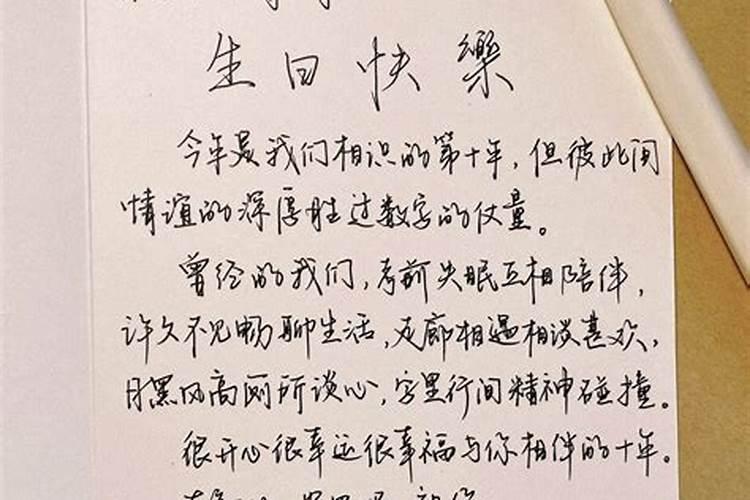 生日快樂
今年是我们相识的第十年，但彼此间
情谊的深厚胜过数字的仗量。
曾经的我们，考前失眠互相陪伴，
许久不见畅聊生活，走廊相逢相谈甚欢，
月黑风高厕所谈心，字里行间精神碰撞。
很开心很幸运很幸福与你相伴的十年。